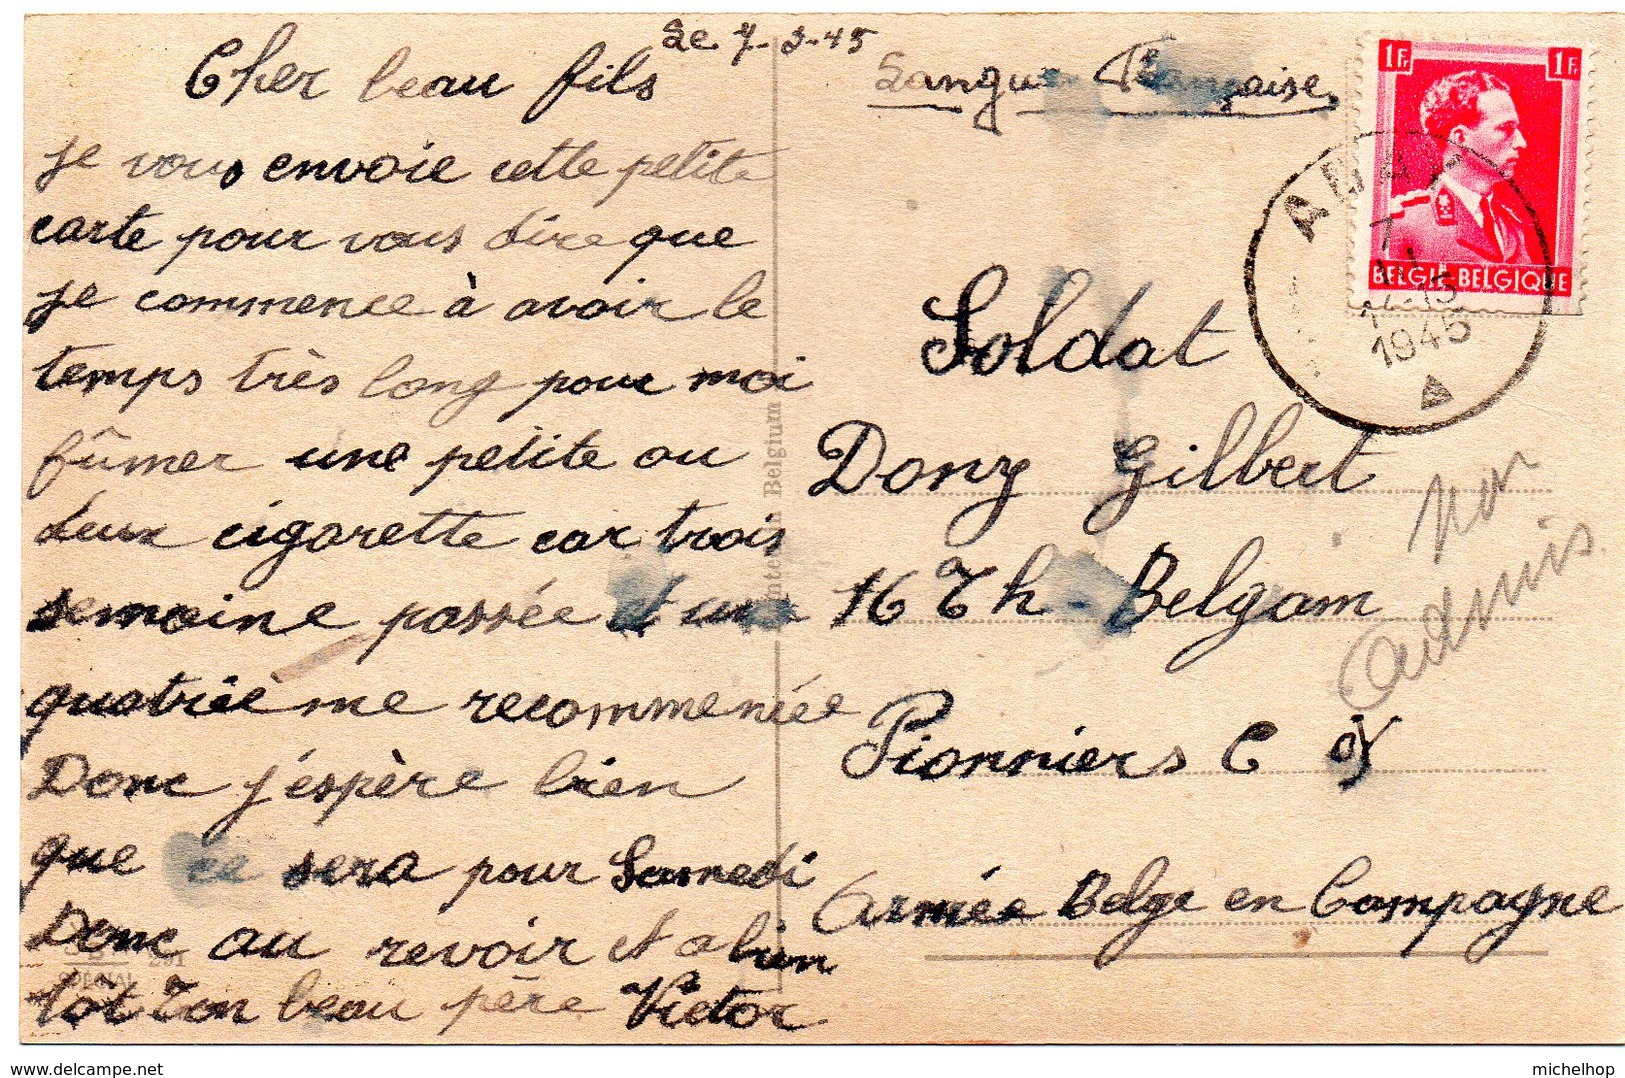 Le 7-3-45
Cher beau fils
je vous envoie cette petite
carte pour vous dire que
je commence à avoir le
temps très long pour moi
fûmer une petite ou
deux cigarette car trois
semaine passée et un
quatrième recommencée
Donc j'espère bien
que ce sera pour Samedi
Donc au revoir et a bien
tot Ton beau père Victor
Langue Française
Soldat
Dony Gilbert
16 Th - Belgam
Pionniers C
Armée Belge en Campagne
Non
admis
1 Fr 1 Fr
BELGIË BELGIQUE
7
1945
in Belgium
SPECIAL
michelhop